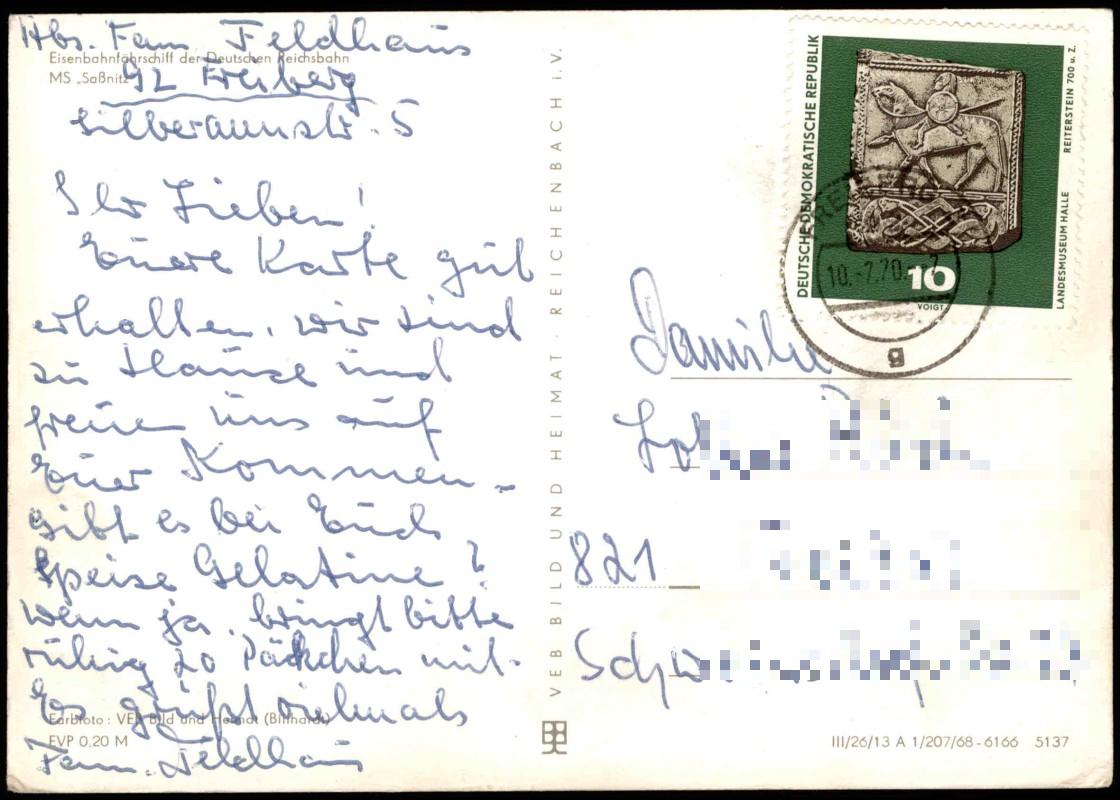 Abs. Fam. Feldhaus
Eisenbahnfährschiff der Deutschen Reichsbahn
MS „Saßnitz“
92 Freiberg
Silbermannstr. 5
Ihr Lieben!
Eure Karte gut
erhalten, wir sind
zu Hause und
freuen uns auf
Euer Kommen.
Gibt es bei Euch
Speise Gelatine?
Wenn ja, bringt bitte
ruhig 20 Päckchen mit.
Es grüßt vielmals
Farbfoto: VEB Bild und Heimat (Binhardt)
EVP 0,20 M
Fam. Feldhaus
VEB BILD UND HEIMAT · REICHENBACH i. V.
DEUTSCHE DEMOKRATISCHE REPUBLIK
REITERSTEIN 700 u. Z.
LANDESMUSEUM HALLE
10
VOIGT
10.-7.70
g
Familie
821
III/26/13 A 1/207/68-6166 5137